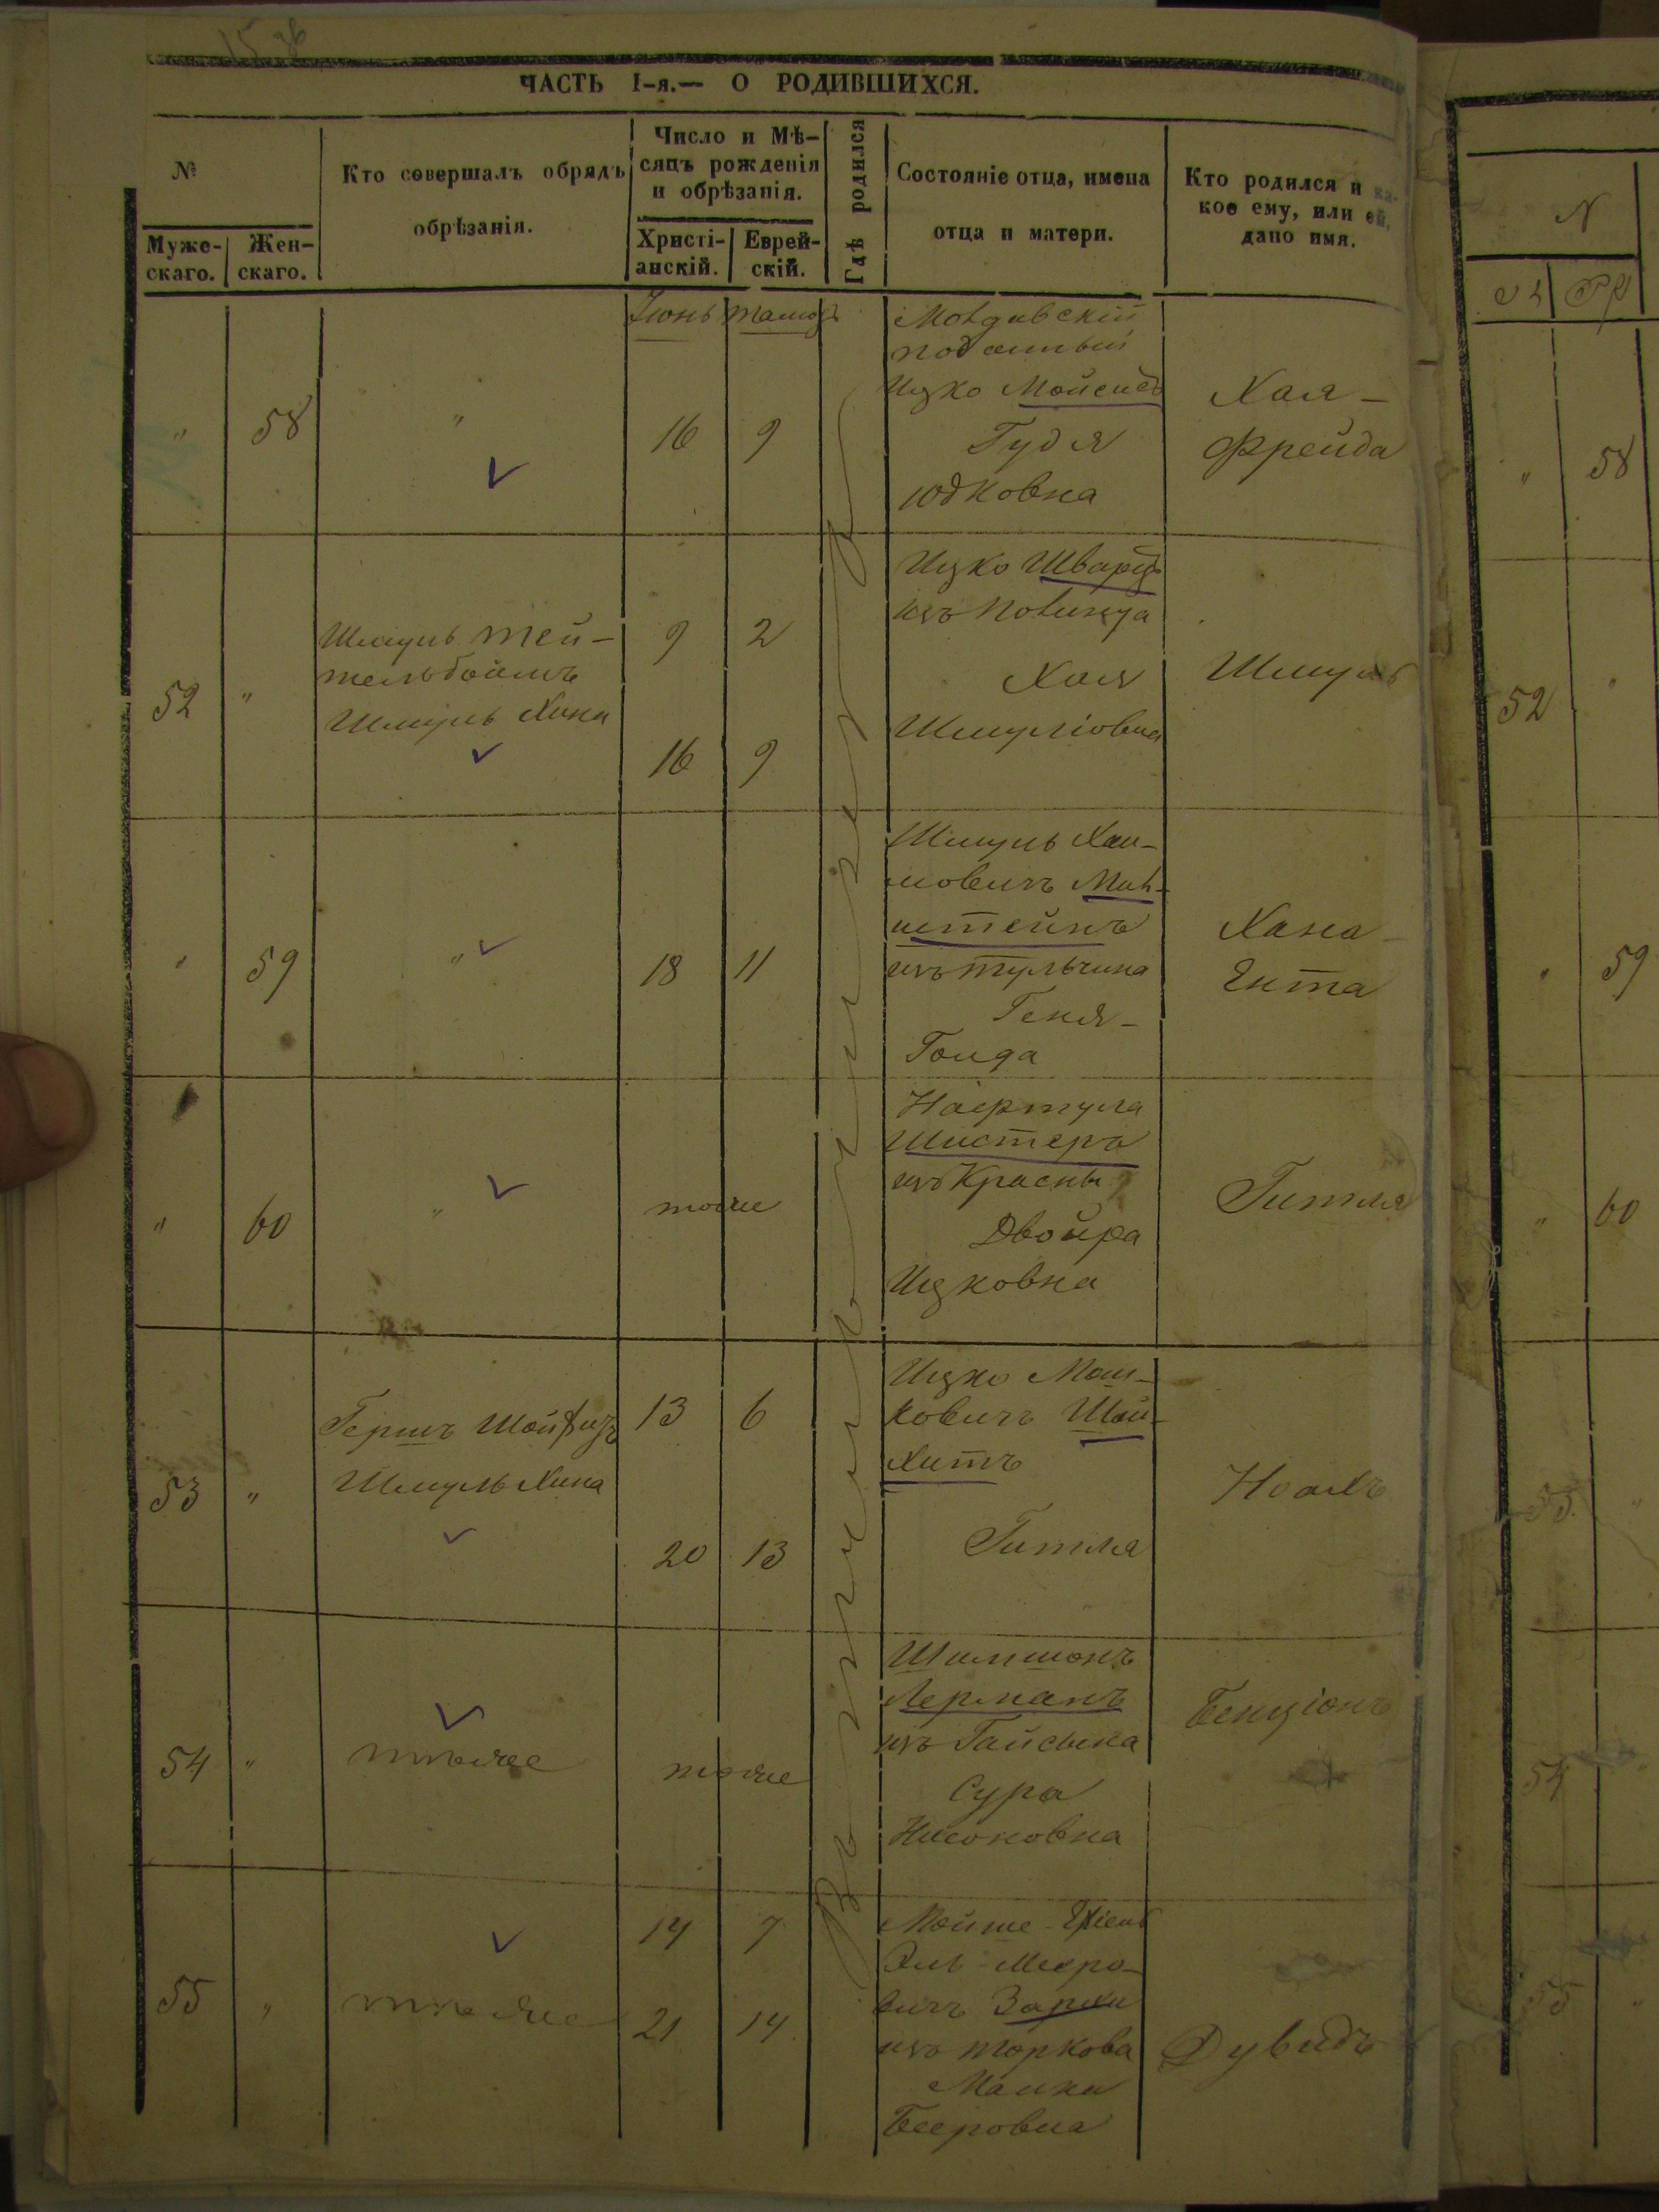 ЧАСТЬ I-я.— О РОДИВШИХСЯ.
№
Муже-
скаго.
Жен-
скаго.
Кто совершалъ обрядъ
обрѣзанія.
Число и Мѣ-
сяцъ рожденія
и обрѣзанія.
Христі-
анскій.
Еврей-
скій.
Гдѣ родился
Состояніе отца, имена
отца и матери.
Кто родился и ка-
кое ему, или ей,
дано имя.
Іюнь
"
58
"
16
9
подданный
Ицко
Гудя
Юдковна
Хая-
Фрейда
52
"
Шмуль Тей-
тельбаумъ
Шмуль Хина
9
2
16
9
Ицко Шварцъ
изъ
Хая
Шмуліовна
Шмуль
"
59
"
18
11
Шмуль Хаи-
мовичъ
штейнъ
изъ Тульчина
Геня-
Хана-
Ента
"
60
"
тоже
Нафтула
Шистеръ
изъ Красны
Двойра
Ицковна
Гитля
53
"
Гершъ Шойфидъ
Шмуль Хина
13
6
20
13
Ицко Мош-
ковичъ Шой-
хитъ
Гитля
Ноахъ
54
"
тоже
тоже
Шимшонъ
Лерманъ
изъ Гайсына
Сура
Нисоновна
Бенціонъ
55
"
тоже
14
7
21
14
Мойше-
вичъ
изъ Торкова
Бееровна
Дувидъ
N
"
58
52
"
"
59
"
60
53
"
54
55